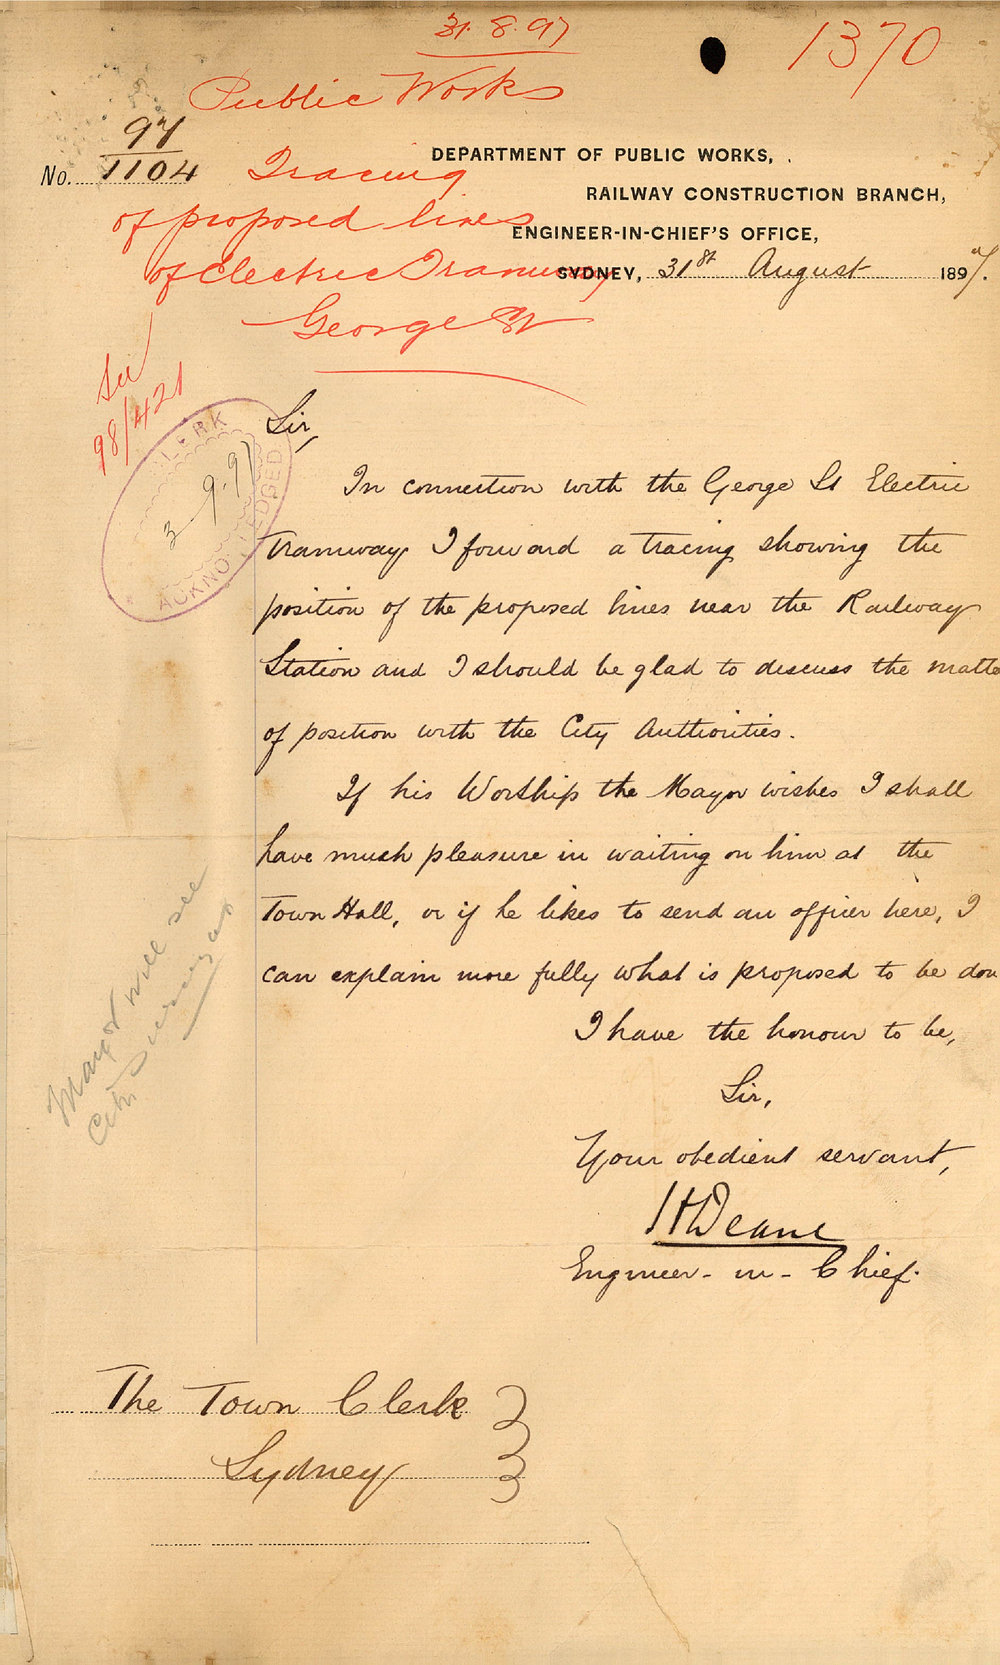 31.8.97
1370
Public Works
97
No. 1104
Tracing
of proposed lines
of Electric Tramway
George St
DEPARTMENT OF PUBLIC WORKS,
RAILWAY CONSTRUCTION BRANCH,
ENGINEER-IN-CHIEF'S OFFICE,
SYDNEY, 31st August 1897.
98/421
CLERK
3-9-97
ACKNOWLEDGED
Sir,
In connection with the George St Electric
Tramway I forward a tracing showing the
position of the proposed lines near the Railway
Station and I should be glad to discuss the matte
of position with the City Authorities.
If his Worship the Mayor wishes I shall
have much pleasure in waiting on him at the
Town Hall, or if he likes to send an officer here, I
can explain more fully what is proposed to be don
I have the honour to be,
Sir,
Your obedient servant,
H Deane
Engineer-in-Chief.
Mayor will see
City Surveyor
The Town Clerk
Sydney